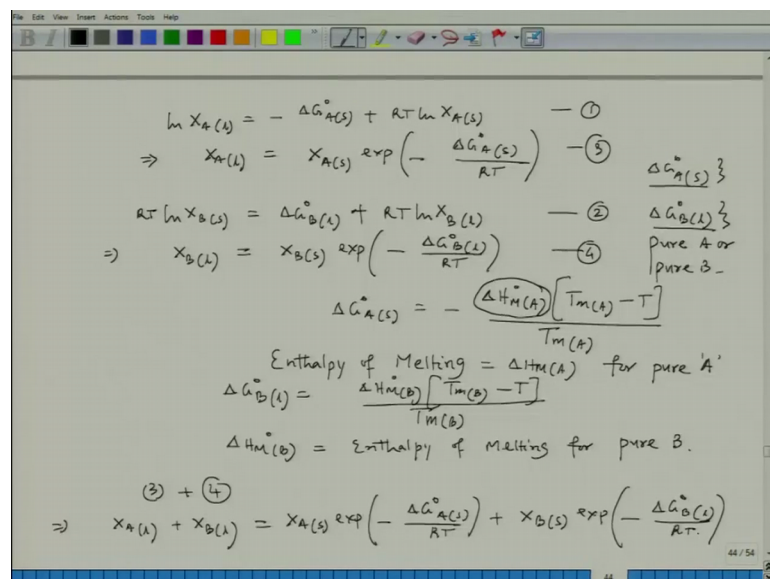 File Edit View Insert Actions Tools Help
B I
ln X_A(l) = - ΔG°_A(s) + RT ln X_A(s) — ①
⇒ X_A(l) = X_A(s) exp(- ΔG°_A(s) / RT) — ③
ΔG°_A(s) }
RT ln X_B(s) = ΔG°_B(l) + RT ln X_B(l) — ②
ΔG°_B(l) }
⇒ X_B(l) = X_B(s) exp(- ΔG°_B(l) / RT) — ④
pure A or
pure B -
ΔG°_A(s) = - ΔH°_M(A) [T_m(A) - T] / T_m(A)
Enthalpy of Melting = ΔH_M(A) for pure 'A'
ΔG°_B(l) = ΔH°_M(B) [T_m(B) - T] / T_m(B)
ΔH°_M(B) = Enthalpy of Melting for pure B.
③ + ④
⇒ X_A(l) + X_B(l) = X_A(s) exp(- ΔG°_A(s) / RT) + X_B(s) exp(- ΔG°_B(l) / RT.)
44 / 54
44